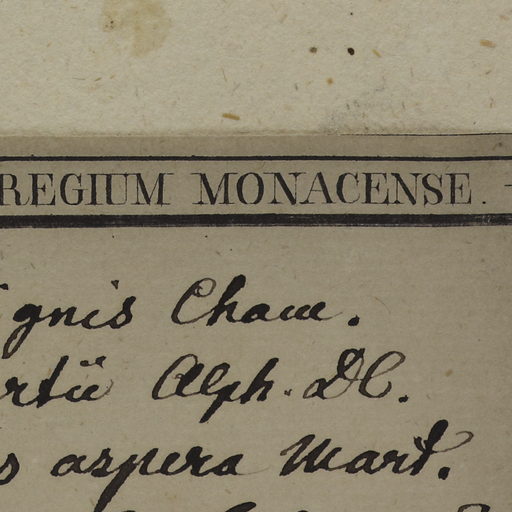 REGIUM MONACENSE. -
ignis Cham.
rtii Alph. DC.
s aspera Mart.